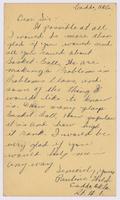 Caddo, Okla.
Dear Sir:
If possible at all
I would be more than
glad if you would send
all you could about
Basket-Ball. We are
making a Problem in
Problems Class and
some of the things I
would like to know
is - How many play
Basket Ball, How popular
it is and how
it rank. I would be
very glad if you
would help me in
any way.
Sincerely yours
Pauline
Caddo, Okla.